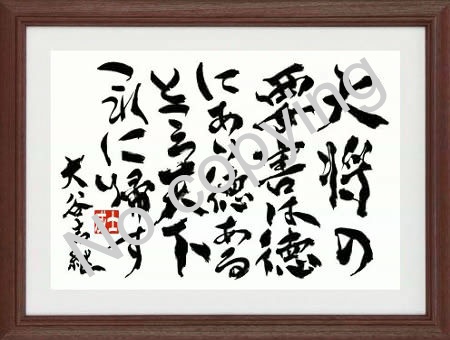 大将の
要害は徳
にあり徳ある
ところ天下
これに帰す
大谷吉継
No copying